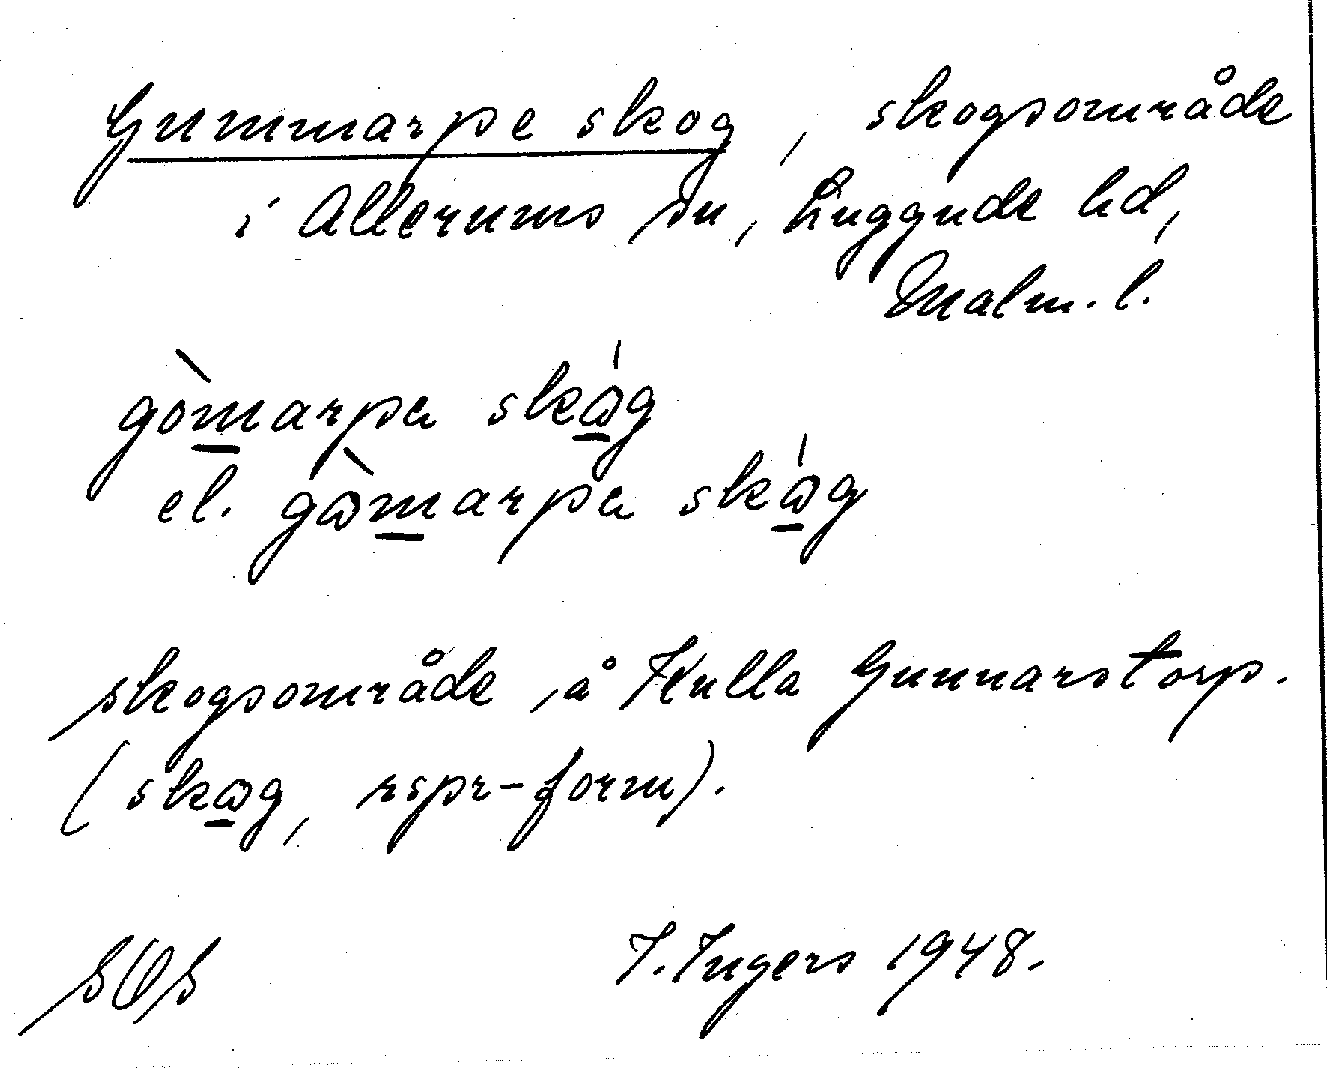 Gummarpe skog, skogsområde
i Allerums sn, Luggude hd,
Malm. l.
gòmarpa skɷ́g
el. gɷ̀marpa skɷ́g
skogsområde å Kulla Gunnarstorp.
(skɷg, rspr-form).
SOS I. Ingers 1948.